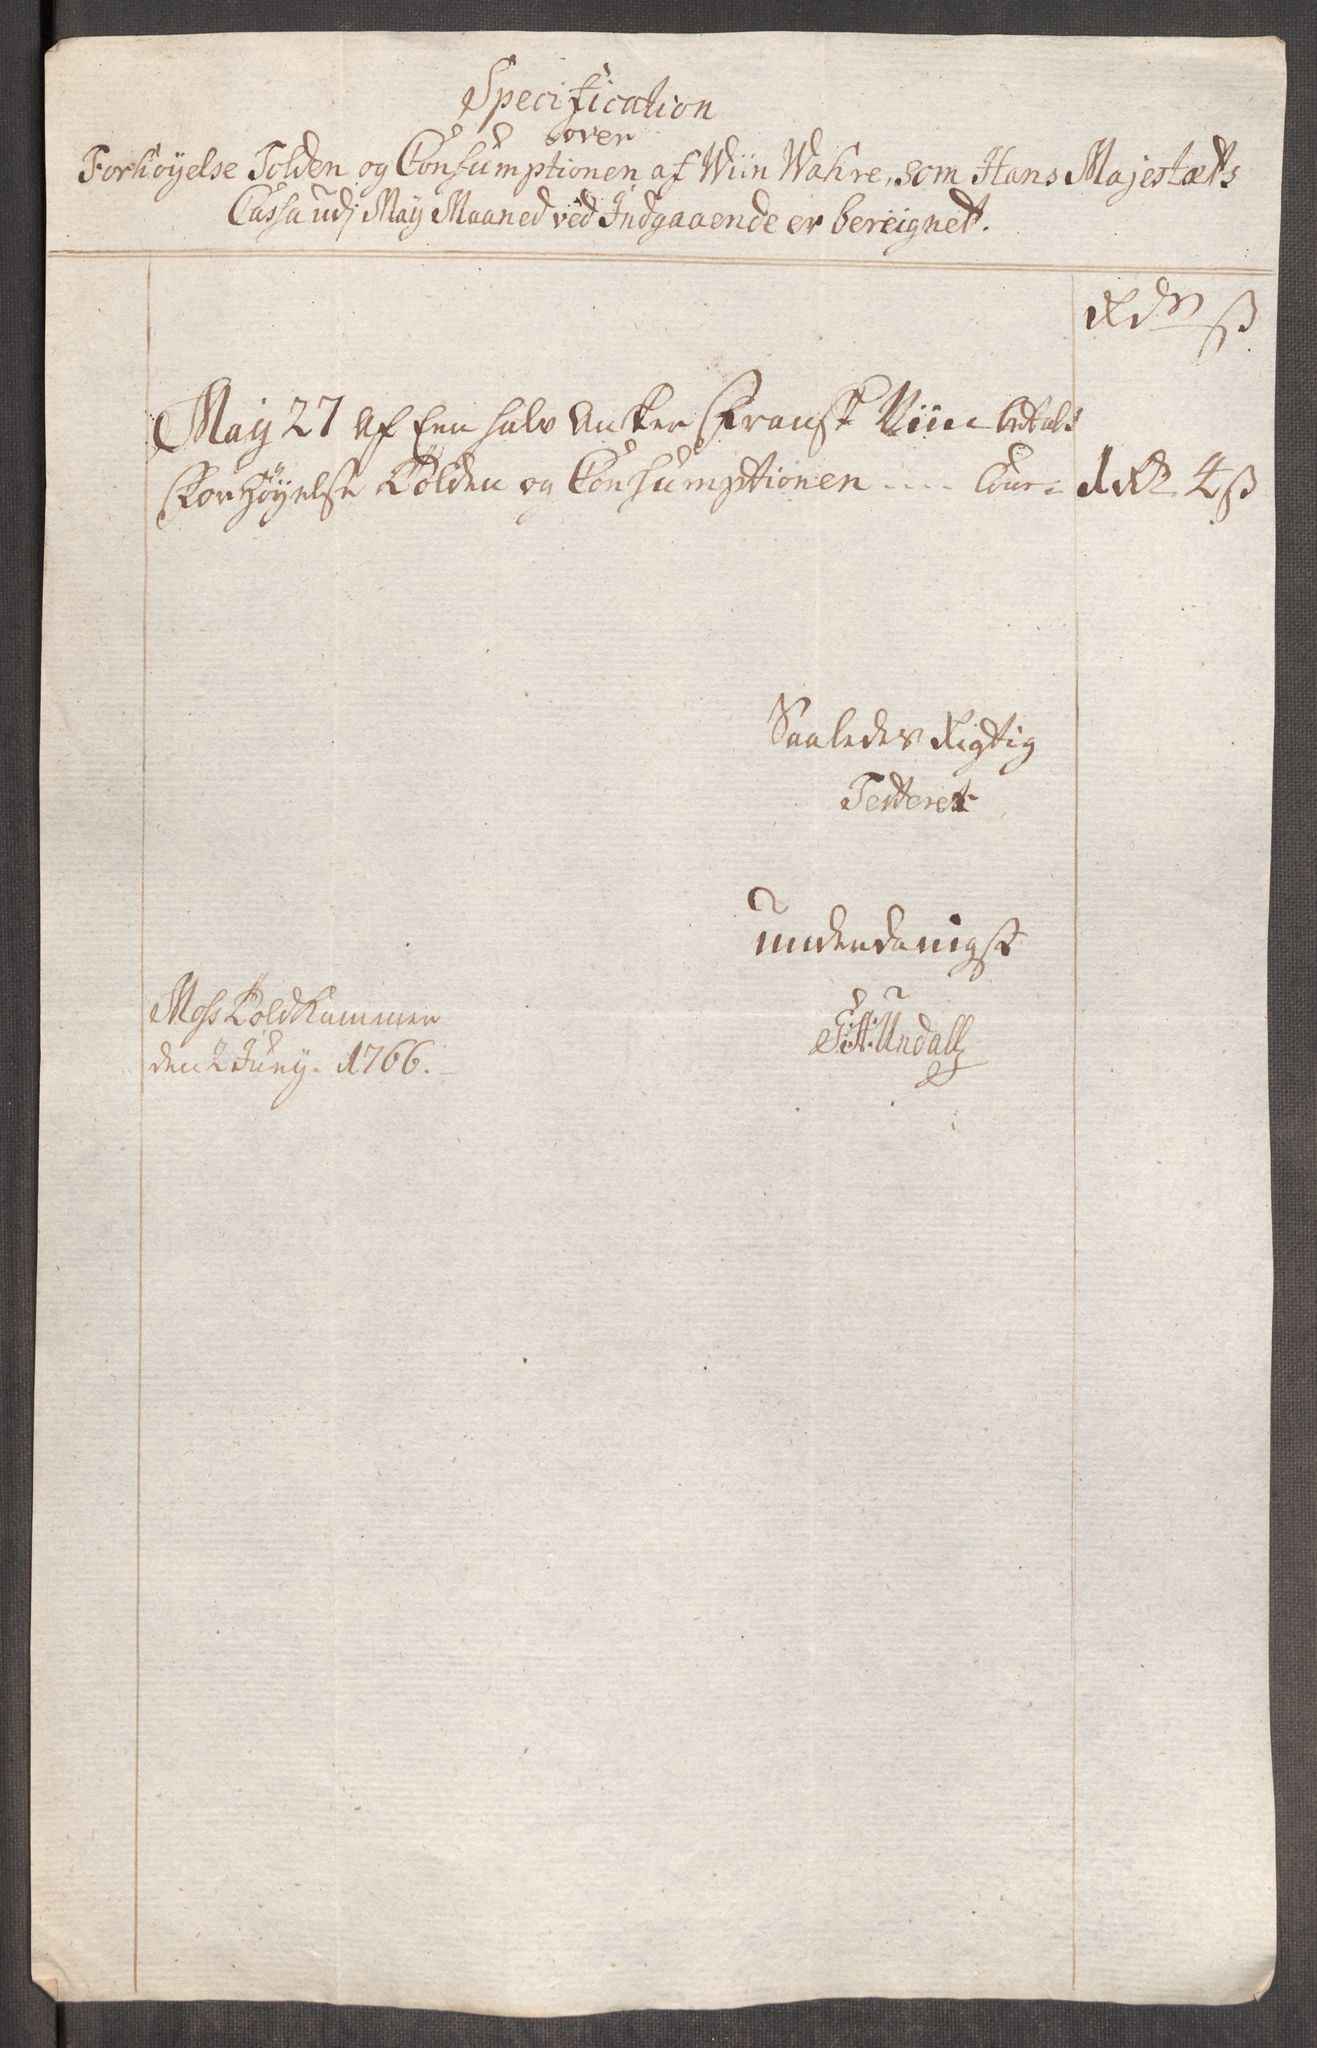 Specification
over
Forhöyelse Tolden og Consumptionen af Wiin Wahre, som Hans Majestæts
Cassa udj Maÿ Maaned ved Indgaaende er bereignet.
Rdr ß
Maÿ 27 Af Een halv Ancker Fransk Viin betalt
Forhöyelse Tolden og Consumptionen .... Cour= 1 Rd 4 ß
Saaledes Rigtig
Testeret
underdanigst
Moss Toldkammer
den 2 Juny. 1766.
Undall